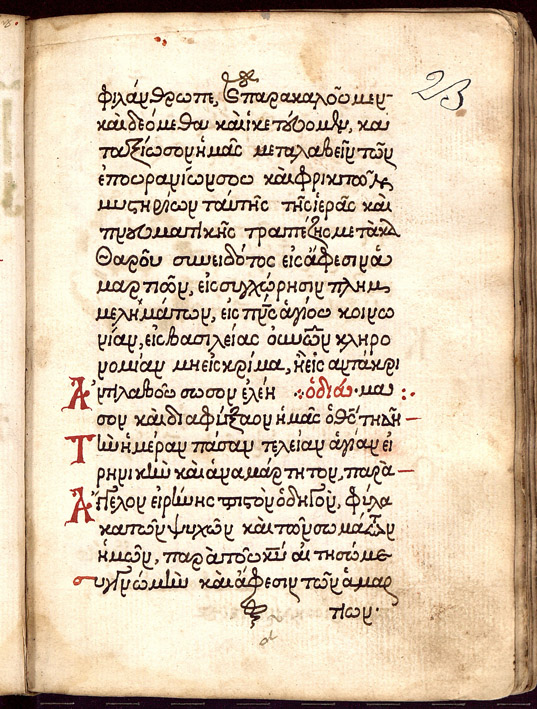 23
φιλάνθρωπε, καὶ παρακαλοῦμεν
καὶ δεόμεθα καὶ ἱκετεύομεν, κατα
ταξίωσον ἡμᾶς μεταλαβεῖν τῶν
ἐπουρανίων σου καὶ φρικτῶν
μυστηρίων ταύτης τῆς ἱερᾶς καὶ
πνευματικῆς τραπέζης μετὰ κα
θαροῦ συνειδότος εἰς ἄφεσιν ἁ
μαρτιῶν, εἰς συγχώρησιν πλημ
μελημάτων, εἰς πνς ἁγίου κοινω
νίαν, εἰς βασιλείας οὐνῶν κληρο
νομίαν μὴ εἰς κρίμα, ἢ εἰς κατάκρι
Ἀντιλαβοῦ σῶσον ἐλέη ὁ διά
σον καὶ διαφύλαξον ἡμᾶς ὁ θς τῇ
Τὴν ἡμέραν πᾶσαν τελείαν ἁγίαν εἰ
ρηνικὴν καὶ ἀναμάρτητον, παρὰ
Ἄγγελον εἰρήνης πιστὸν ὁδηγόν, φύλα
κα τῶν ψυχῶν καὶ τῶν σωμάτων
ἡμῶν, παρὰ τοῦ κυ αἰτησώμε
συγγνώμην καὶ ἄφεσιν τῶν ἁμαρ
τιων.